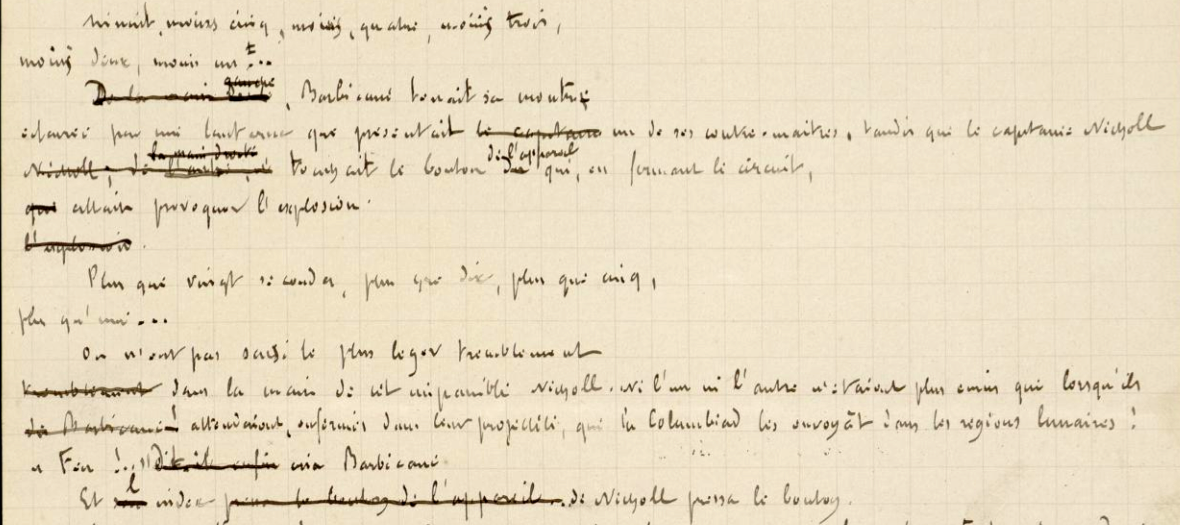 minuit, moins cinq, moins, quatre, moins trois,
moins deux, moins un !...
gauche
De la main , Barbicane tenait sa montre,
éclairée par une lanterne que présentait le capitaine un de ses contre-maîtres, tandis que le capitaine Nicholl
la main droite de l'appareil
Nicholl, de l'autre, touchait le bouton qui, en fermant le circuit,
qui allait provoquer l'explosion.
l'explosion.
Plus que vingt secondes, plus que dix, plus que cinq,
plus qu'une...
On n'eut pas saisi le plus léger tremblement
tremblement dans la main de cet impassible Nicholl. Ni l'un ni l'autre n'étaient plus émus que lorsqu'ils
de Barbicane ! attendaient, enfermés dans leur projectile, que la Columbiad les envoyât dans les régions lunaires !
« Feu !.. » dit-il enfin cria Barbicane
l
Et index pressa le bouton de l'appareil. de Nicholl pressa le bouton.